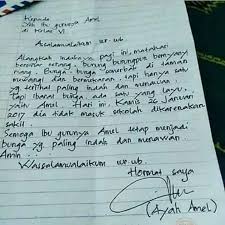 Kepada
Yth ibu gurunya Amel
di Kelas VI
Assalamualaikum wr. wb.
Alangkah indahnya pagi ini, matahari
bersinar terang, burung-burung bernyanyi
riang. Bunga-bunga bermekaran di taman
mewangi dan bermekaran, tapi hanya satu
yg terlihat paling indah dan menawan.
Tapi ibarat bunga, ada satu yang layu,
yaitu Amel. Hari ini, Kamis 26 Januari
2017 dia tidak masuk sekolah dikarenakan
sakit.
Semoga ibu gurunya Amel tetap menjadi
bunga yg. paling indah dan menawan
Amin...
Wassalamualaikum wr. wb.
Hormat saya
(Ayah Amel)